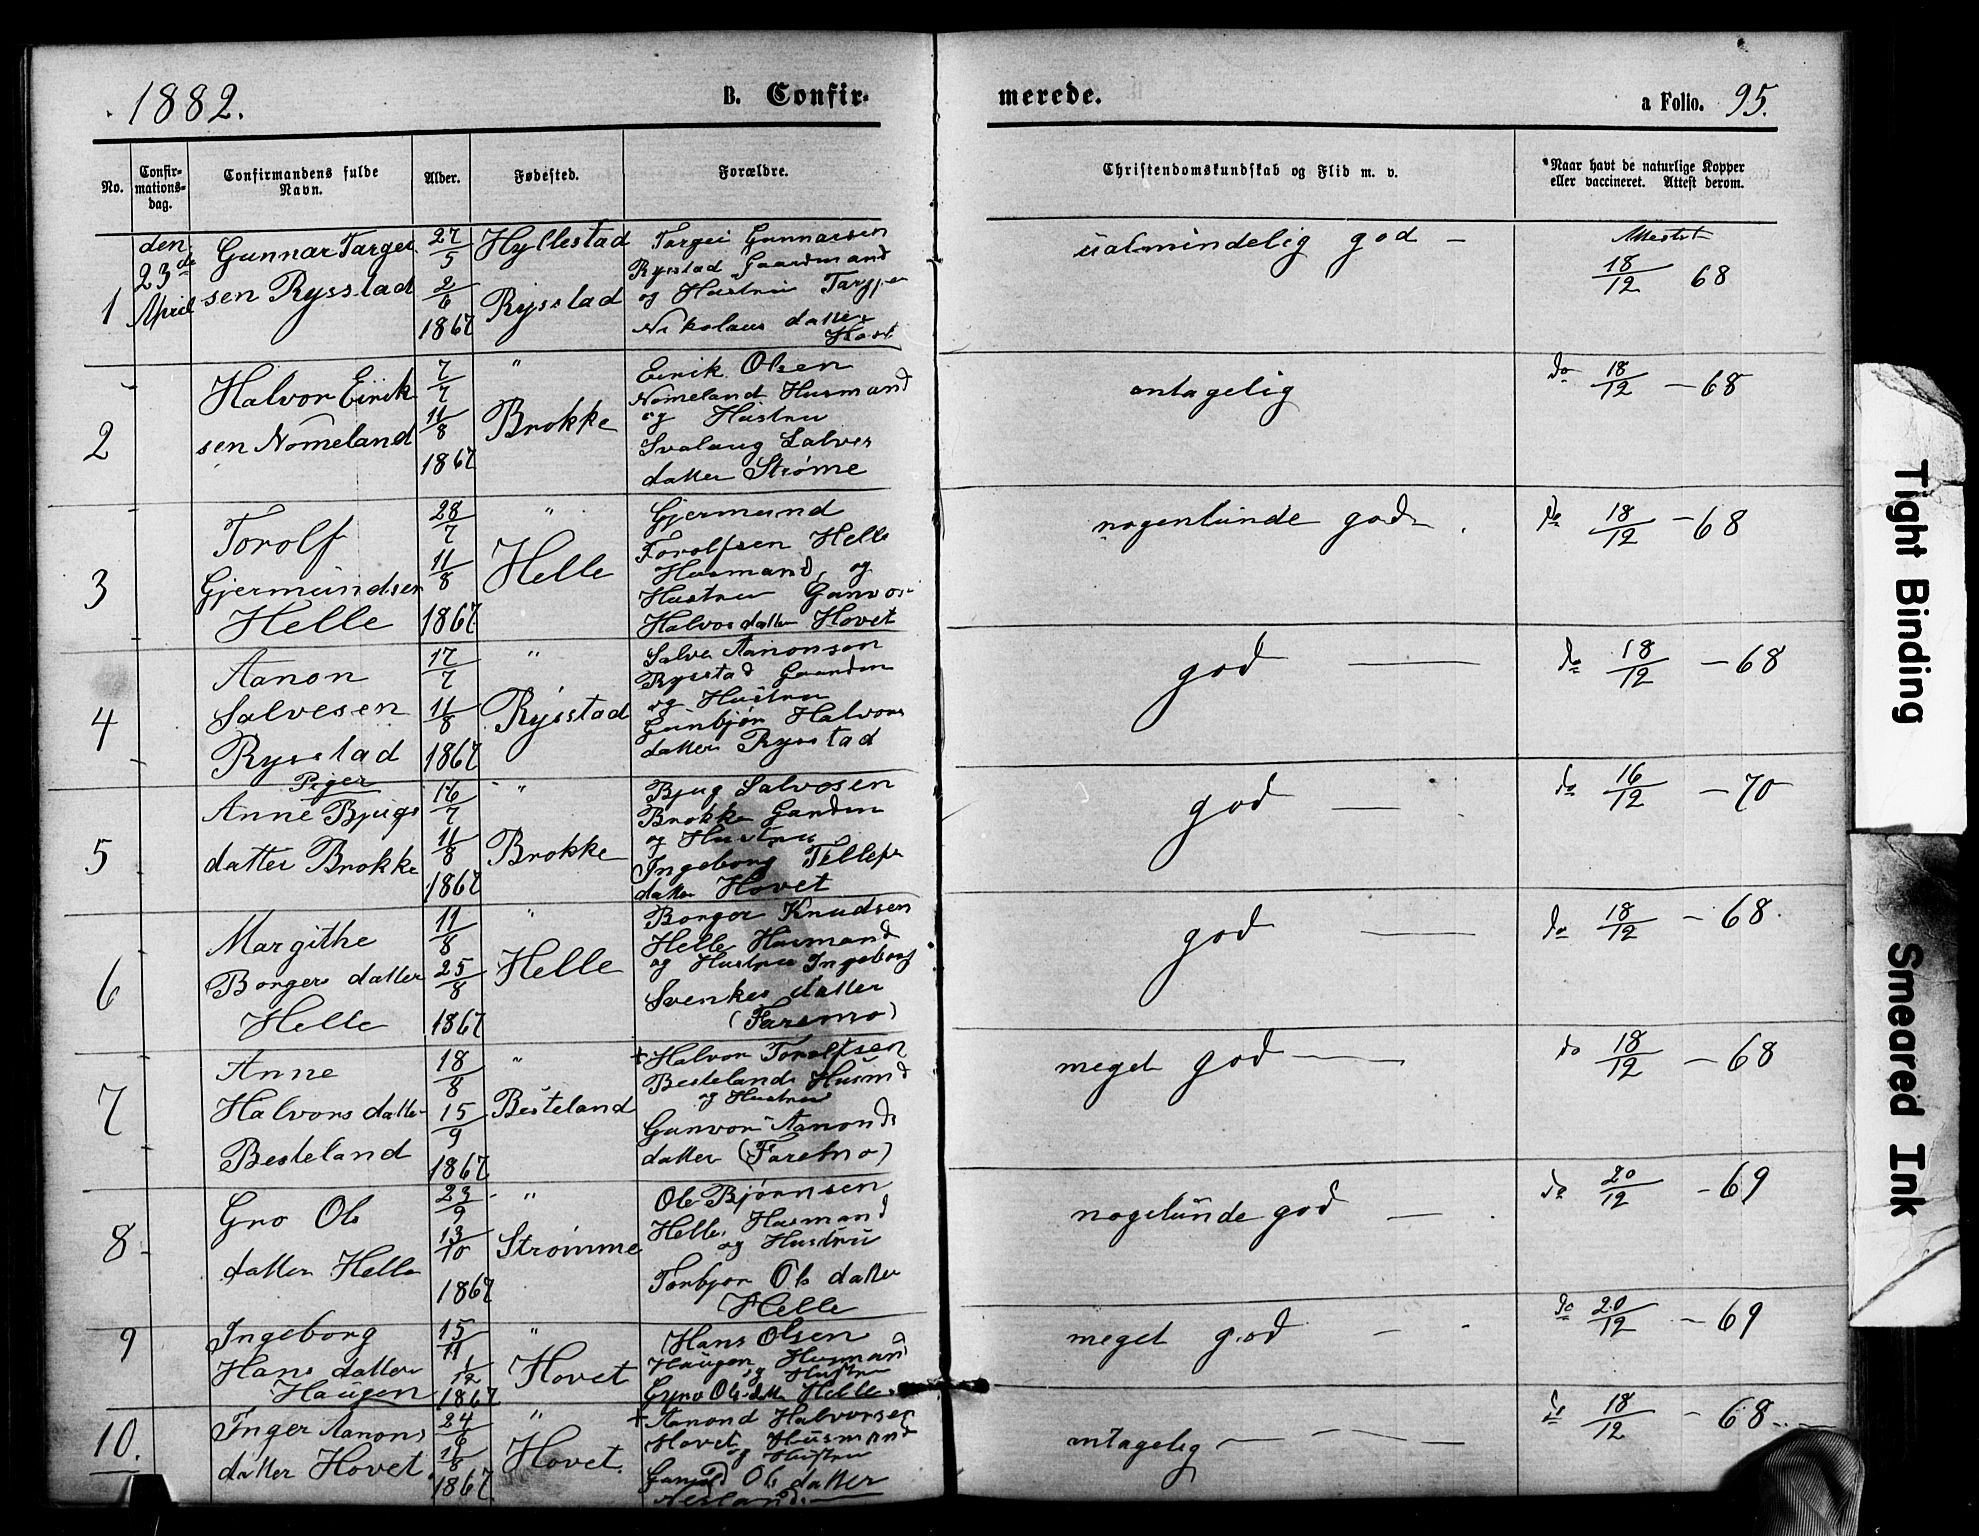 1882.
B. Confir-
merede.
a Folio. 95.
No.
Confir-
mations-
dag.
Confirmandens fulde
Navn.
Alder.
Fødested.
Forældre.
Christendomskundskab og Flid m. v.
Naar havt de naturlige Kopper
eller vaccineret. Attest derom.
1
den
23de
April
Gunnar Targei
sen Rysstad
27/5
2/6
1867
Hyllestad
Rysstad
Targei Gunnarsen
Rysstad Gaardmand
og Hustru
Nikolaus datter
ualmindelig god —
Attestert
18/12 68
2
Halvor Eirik
sen Nomeland
7/7
11/8
1867
"
Brokke
Eirik Olsen
Nomeland Husmand
og Hustru
Svalaug Salves
datter Strøme
antagelig
do 18/12 — 68
3
Torolf
Gjermundsen
Helle
28/7
11/8
1867
"
Helle
Gjermund
Torolfsen Helle
Husmand, og
Hustru Gunvor
Halvorsdatter Hovet
nogenlunde god
do 18/12 — 68
4
Aanon
Salvesen
Rysstad
17/7
11/8
1867
"
Rysstad
Salve Aanonsen
Rysstad Gaardm
og Hustru
Gunbjør Halvors
datter Rysstad
god —
do 18/12 — 68
Piger
5
Anne Bjugs
datter Brokke
16/7
11/8
1867
"
Brokke
Bjug Salvesen
Brokke Gardm
og Hustru
Ingeborg Tellefs
datter Hovet
god —
do 16/12 — 70
6
Margithe
Borgers datter
Helle
11/8
25/8
1867
"
Helle
Borger Knudsen
Helle Husmand
og Hustru Ingeborg
Svenkes datter
(Faremo)
god —
do 18/12 — 68
7
Anne
Halvors datter
Besteland
18/8
15/9
1867
"
Besteland
+ Halvor Torolfsen
Besteland Husmd
og Hustru
Gunvor Aanonds
datter (Faremo)
meget god —
do 18/12 — 68
8
Gro Ols
datter Helle
23/9
13/10
1867
"
Strømme
Ole Bjørnsen
Helle, Husmand
og Hustru
Torbjør Ols datter
Helle
nogelunde god —
do 20/12 — 69
9
Ingeborg
Hans datter
Haugen
15/11
1/12
1867
"
Hovet
Hans Olsen
Haugen Husmand
og Hustru
Gyro Olsdatter Helle
meget god —
do 20/12 — 69
10.
Inger Aanons
datter Hovet
24/6
1867
"
Hovet.
+ Aanond Halvorsen
Hovet Husmand
og Hustru
Ols datter
antagelig —
do 18/12 — 68
Tight Binding
Smeared Ink